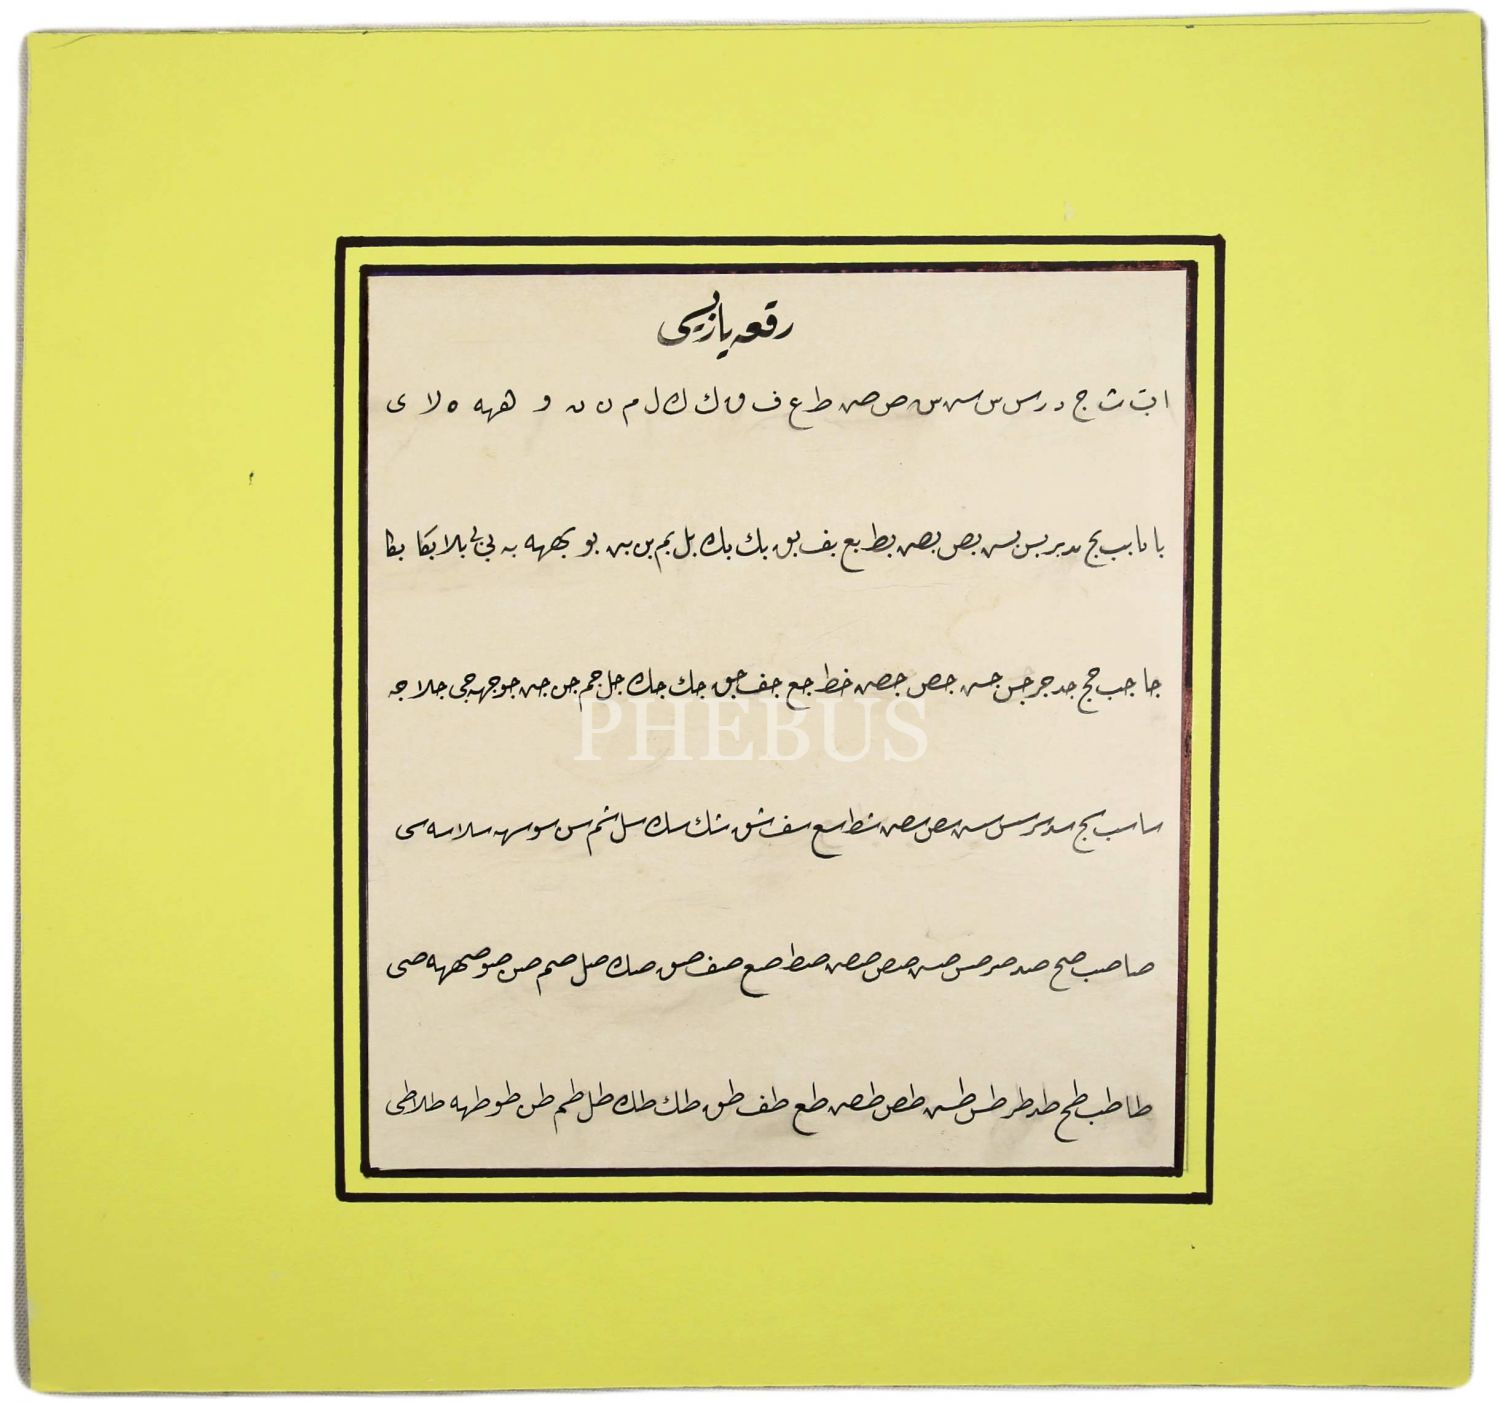 رقعه یازیسی
ا ب ت ث ج د ر س س س س ص ص ط ع ف ق ك ك ل م ن ن و ههه ه لا ى
با نا بب بج بد بر بس بس بص بص بط بع بف بق بك بك بل بم بن بن بو بههه به بى بى بلا بكا بكا
جا جب جج جد جر جس جس جص جص خط جع جف جق جك جك جل جم جن جن جو جهه جى جلا جه
سا سب سج سد سر سس سس سص سص شط سع سف شق شك سك سل شم سن سو سهه سلا سه سى
صا صب صح صد صر صس صس صص صص صط صع صف صق صك صل صم صن صو صههه صى
طا طب طح طد طر طس طس طص طص طع طف طق طك طك طل طم طن طو طهه طلا طى
PHEBUS